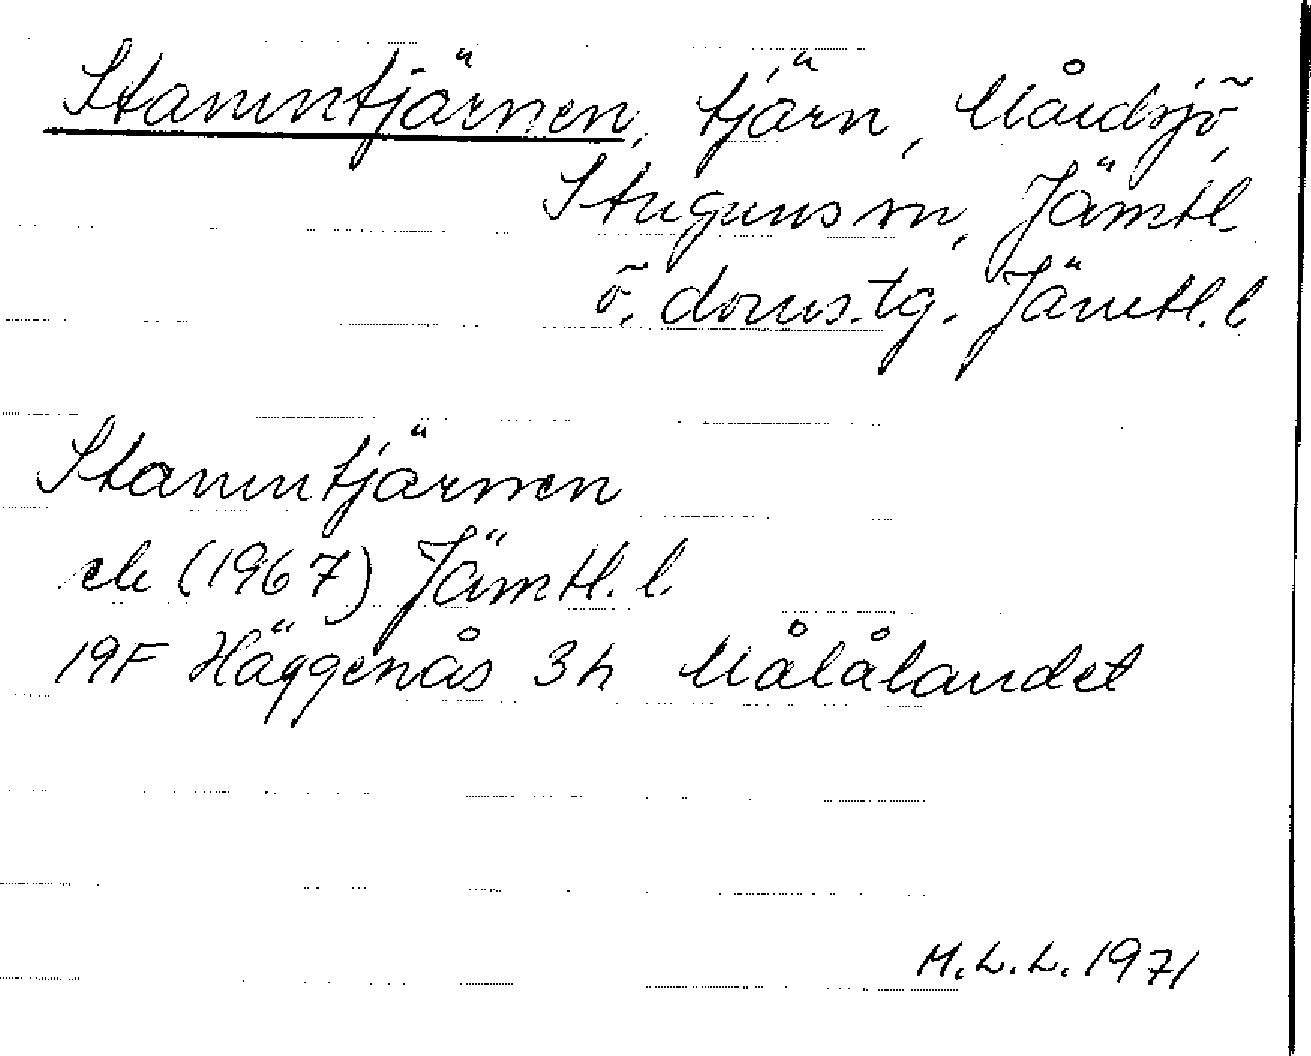 Stamntjärnen, tjärn, Mårdsjö,
Stuguns sn, Jämtl.
ö. doms.tg. Jämtl. l
Stamntjärnen
ek (1967) Jämtl. l.
19F Häggenås 3h Målålandet
M.L.L. 1971